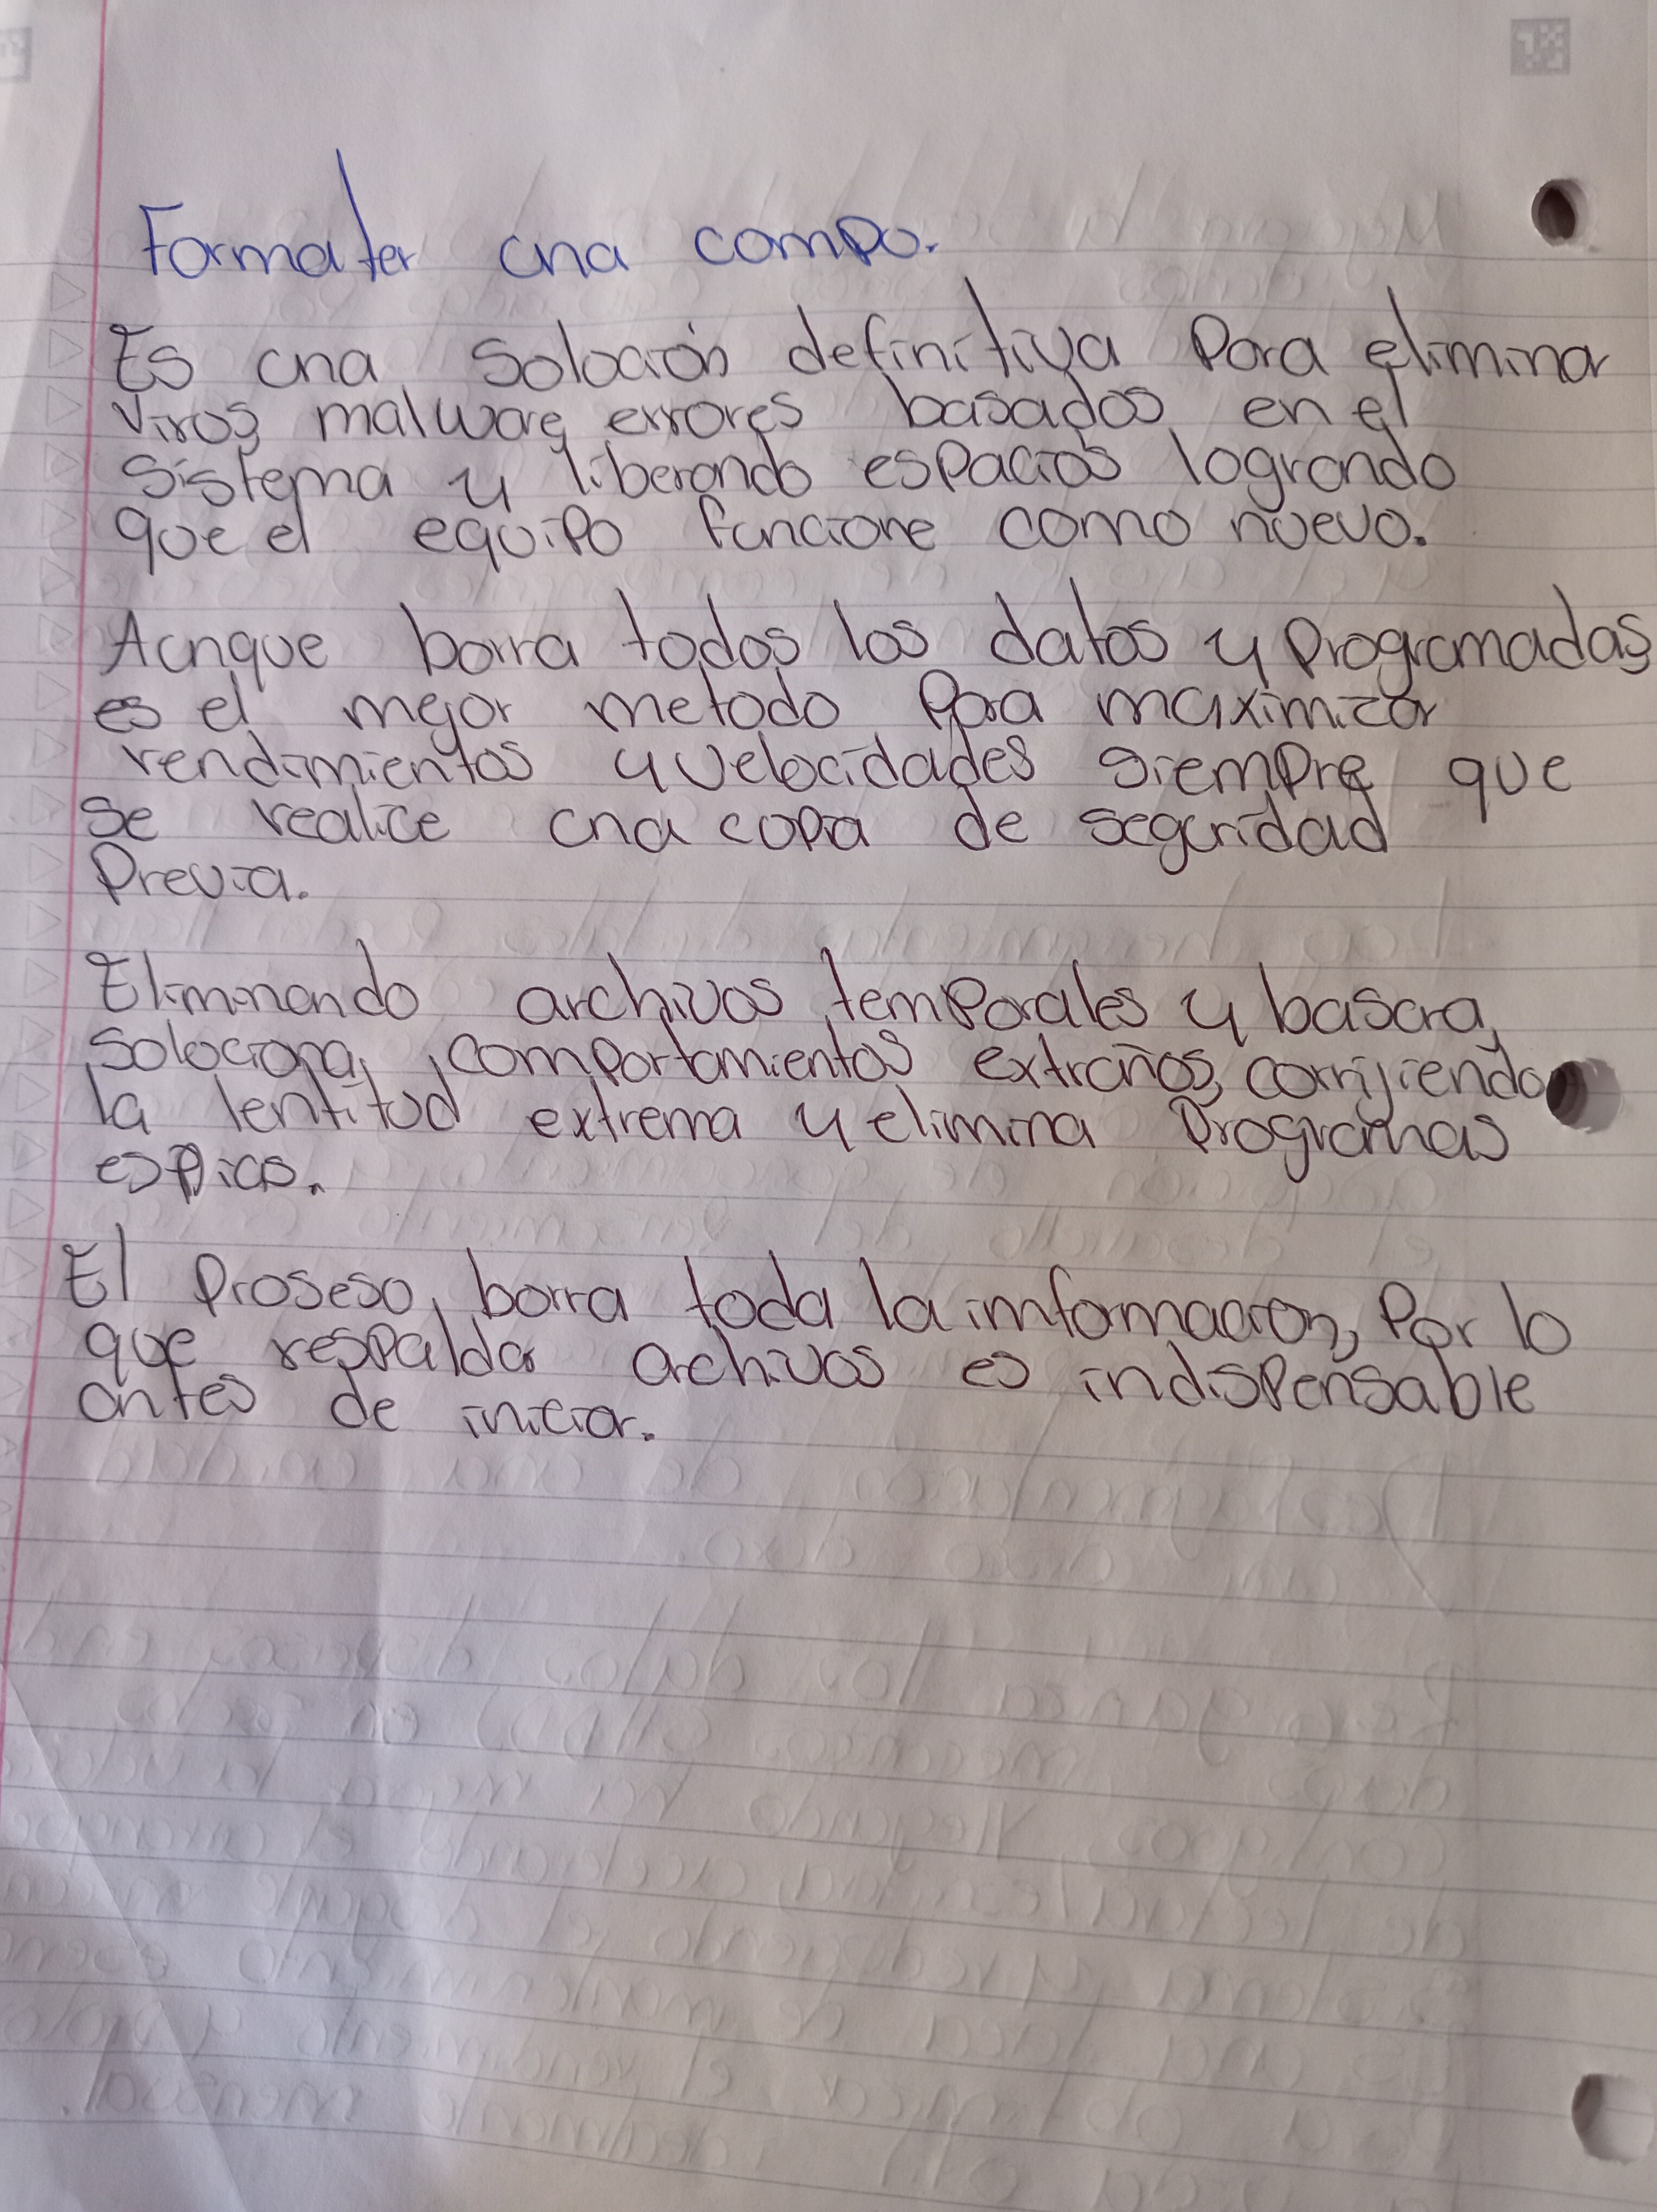 Formater una compu.
Es una solución definitiva para eliminar
virus, malware, errores basados en el
sistema y liberando espacios logrando
que el equipo funcione como nuevo.
Aunque borra todos los datos y programadas,
es el mejor metodo para maximizar
rendimientos y velocidades siempre que
se realice una copia de seguridad
previa.
Eliminando archivos temporales y basura,
soluciona comportamientos extraños, corrijiendo
la lentitud extrema y elimina programas
espias.
El proseso borra toda la imformacion, por lo
que respaldar archivos es indispensable
antes de iniciar.